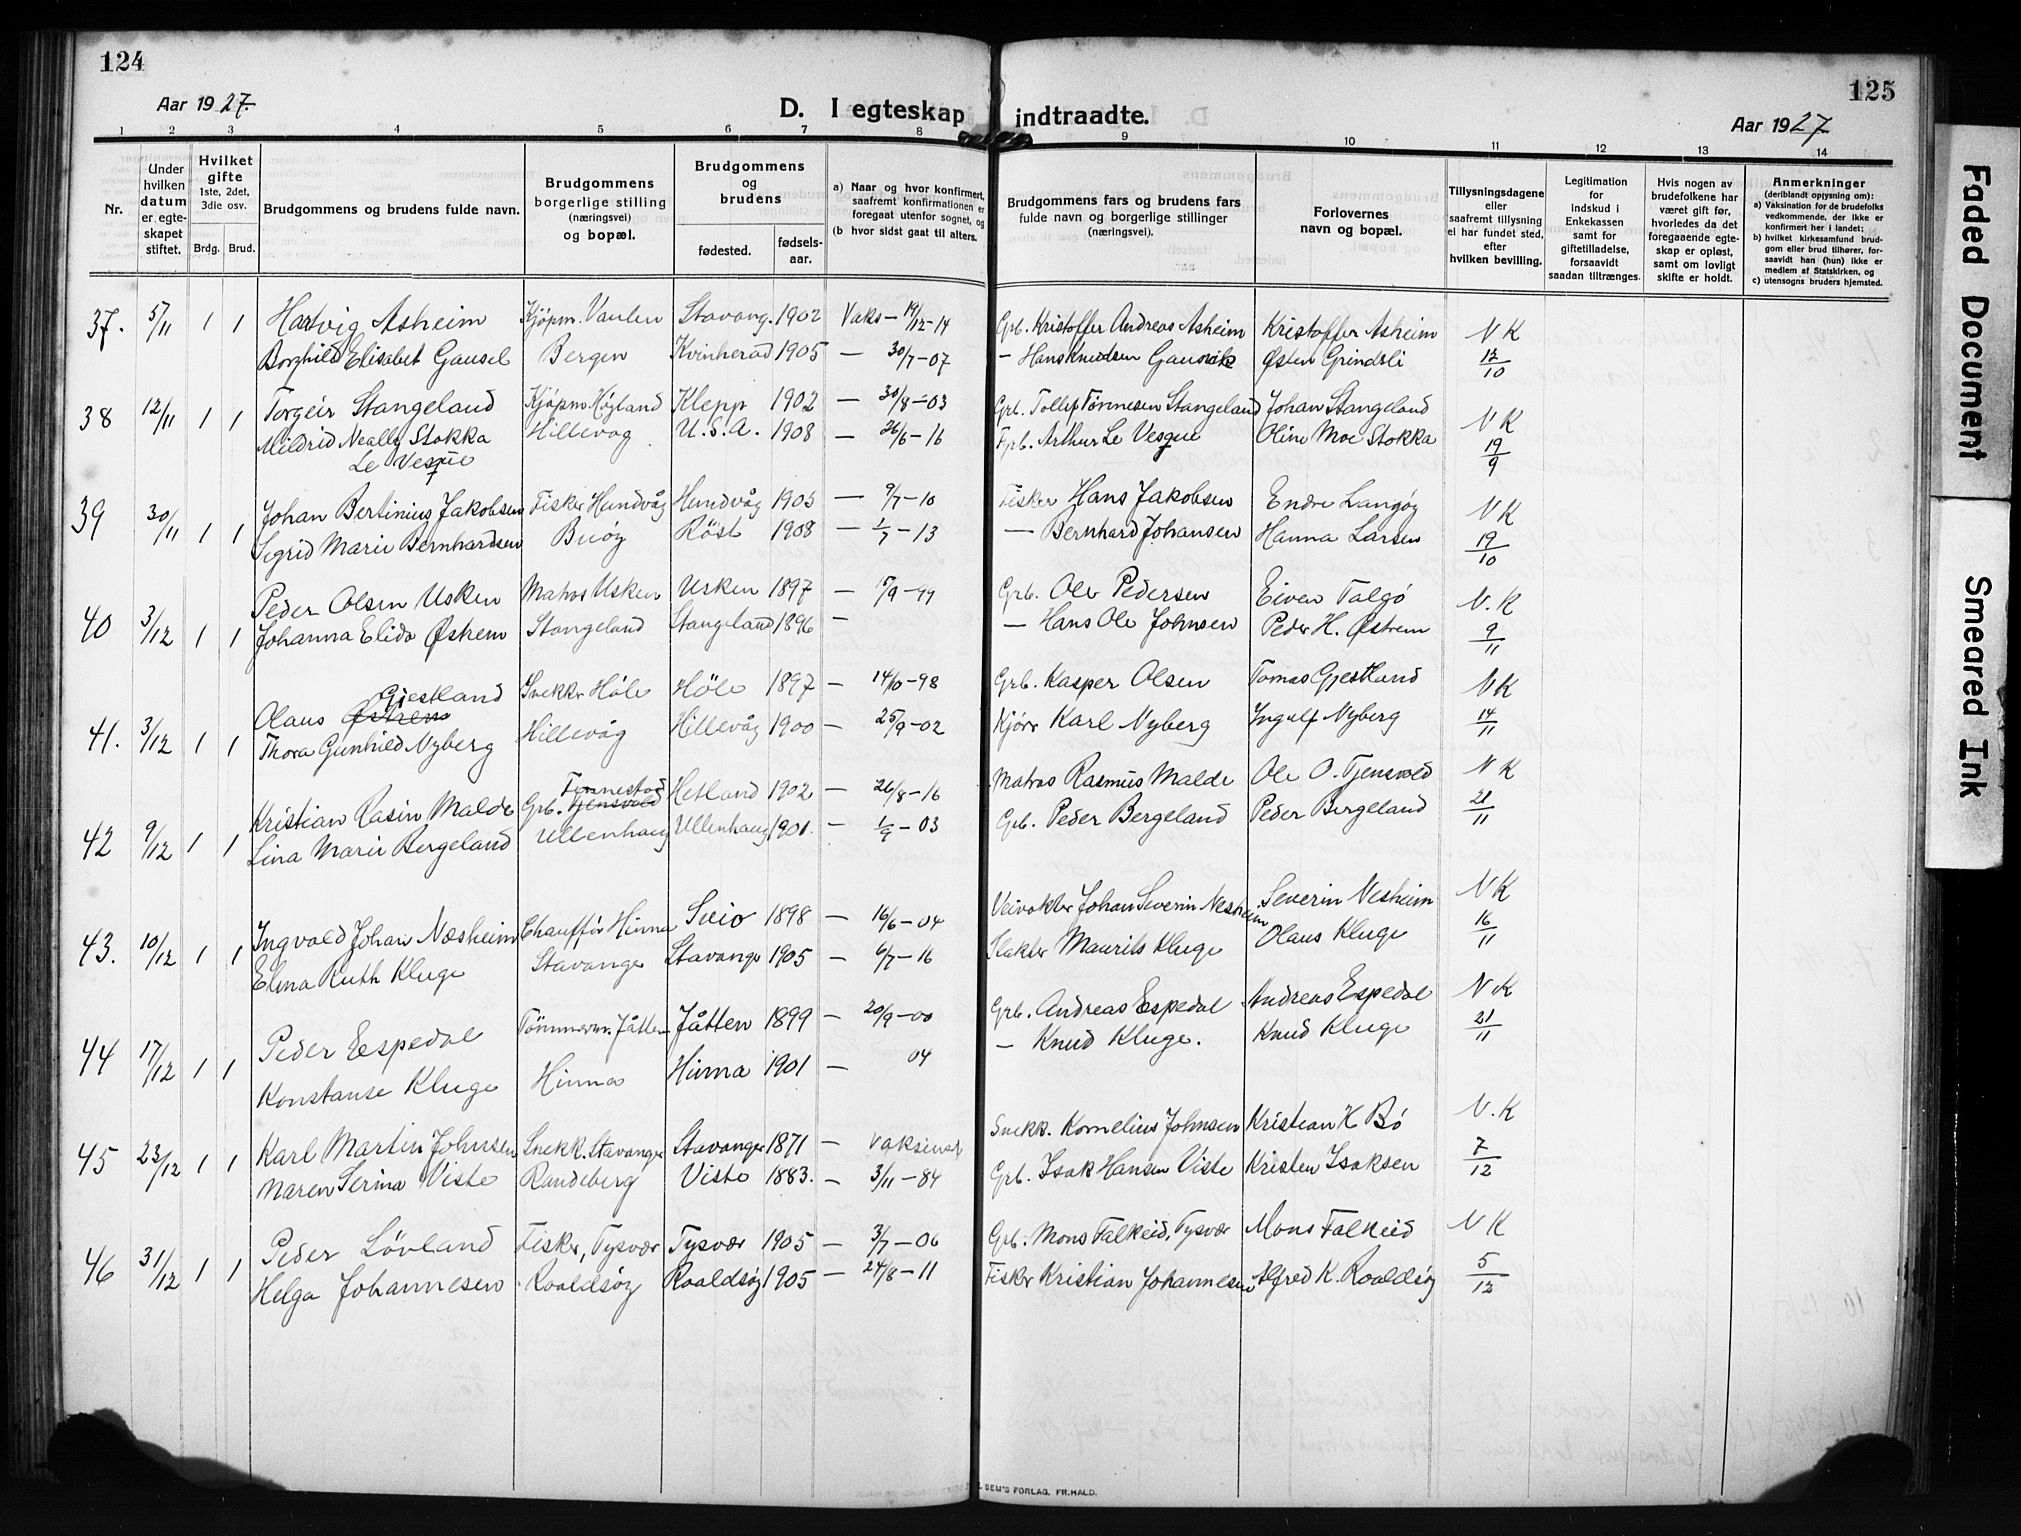 124
Aar 1927.
D. I egteskap indtraadte.
125
Aar 1927
1 2 3 4 5 6 7 8 9 10 11 12 13 14
Nr.
Under hvilken datum er egteskapet stiftet.
Hvilket gifte 1ste, 2det, 3die osv.
Brdg. Brud.
Brudgommens og brudens fulde navn.
Brudgommens borgerlige stilling (næringsvei) og bopæl.
Brudgommens og brudens
fødested. fødsels-aar.
a) Naar og hvor konfirmert, saafremt konfirmationen er foregaat utenfor sognet, og
(b hvor sidst gaat til alters.
Brudgommens fars og brudens fars fulde navn og borgerlige stillinger (næringsvei).
Forlovernes navn og bopæl.
Tillysningsdagene eller saafremt tillysning ei har fundet sted, efter hvilken bevilling.
Legitimation for indskud i Enkekassen samt for giftetilladelse, forsaavidt saadan tiltrænges.
Hvis nogen av brudefolkene har været gift før, hvorledes da det foregaaende egteskap er opløst, samt om lovligt skifte er holdt.
Anmerkninger (deriblandt opjysning om):
a) Vaksination for de brudefolks vedkommende, der ikke er konfirmert her i landet;
b) hvilket kirkesamfund brudgom eller brud tilhører, forsaavidt han (hun) ikke er medlem af Statskirken, og
c) utensogns bruders hjemsted.
37. 5/11 1 1 Hartvig Asheim Kjøpm. Vaulen Stavang. 1902 Vaks – 19/12 – 14 Grb. Kristoffer Andreas Asheim Kristoffer Asheim N K
Borghild Elisabet Gausel Bergen Kvinherad 1905 — 30/7 – 07 – Hans Knudsen Østen Grindsli 12/10
38 12/11 1 1 Torgeir Stangeland Kjøpm. Høgland Klepp 1902 — 30/8 – 03 Grb. Tollef Tønnesen Stangeland Johan Stangeland N K
Mildrid Neally Stokka Hillevag U.S.A. 1908 — 26/6 – 16 Arthur Le Vesque Oline Moe Stokka 19/9
Le Vesque
39 30/11 1 1 Johan Bertinius Jakobsen Fisker Hundvåg Hundvåg 1905 — 9/7 – 10 Fisker Hans Jakobsen Endre Langøy N K
Sigrid Marie Bernhardsen Buøy Röst 1908 — 1/7 – 13 — Bernhard Johansen Hanna Larsen 19/10
40 3/12 1 1 Peder Olsen Usken Matros Usken Usken 1897 — Grb. Ole Pedersen Eiven Talgø N. K
Johanna Elida Østrem Stangeland Stangeland 1896 — — Hans Ole Johnsen Peder H. Østrem 9/11
41. 3/12 1 1 Olaus Østrem Gjestland Snekker Høle Höle 1897 — 14/10 – 98 Grb. Kasper Olsen Tomas Gjestland N K
Thora Gunhild Nyberg Hillevåg Hillevåg 1900 — 25/9 – 02 Kjörer Karl Nyberg Ingulf Nyberg 14/11
42 9/12 1 1 Kristian Rasin Malde Grb. Tjensvold Hetland 1902 — 26/8 – 16 Matros Rasmus Malde Ole O. Tjensvold N K
Lina Marie Bergeland Ullenhaug Ullenhaug 1901. — 1/9 – 03 Grb. Peder Bergeland Peder Bergeland 21/11
43. 10/12 1 1 Ingvald Johan Næsheim Chauffør Hinna Sveio 1898 — 16/6 – 04 Veivokter Johan Severin Nesheim Severin Nesheim N K
Elena Ruth Kluge Stavanger Stavanger 1905 — 6/7 – 16 Slakter Maurits Kluge Olaus Kluge 16/11
44 17/12 1 1 Peder Espedal Tömmerm. Jåtten Jåtten 1899 — 20/9 – 00 Grb. Andreas Espedal Andreas Espedal N K
Konstanse Kluge Hinna Hinna 1901 — 04 — Knud Kluge. Knud Kluge 21/11
45 23/12 1 1 Karl Martin Johnsen Snekk. Stavanger Stavanger 1871 — Snekk. Kornelius Johnsen Kristian K Bö N. K
Maren Serina Viste Randeberg Viste 1883. — 3/11 – 84 Grb. Isak Hansen Viste Kristen Isaksen 7/12
46 31/12 1 1 Peder Lövland Fisker, Tysvær Tysvær 1905 — 3/7 – 06 Grb. Mons Falkeid, Tysvær Mons Falkeid N K
Helga Johannesen Roaldsöy Roaldsöy 1905 — 24/8 – 11 Fisker Kristian Johannesen Alfred K. Roaldsöy 5/12
SEM'S FORLAG, FR.HALD.
Faded Document
Smeared Ink